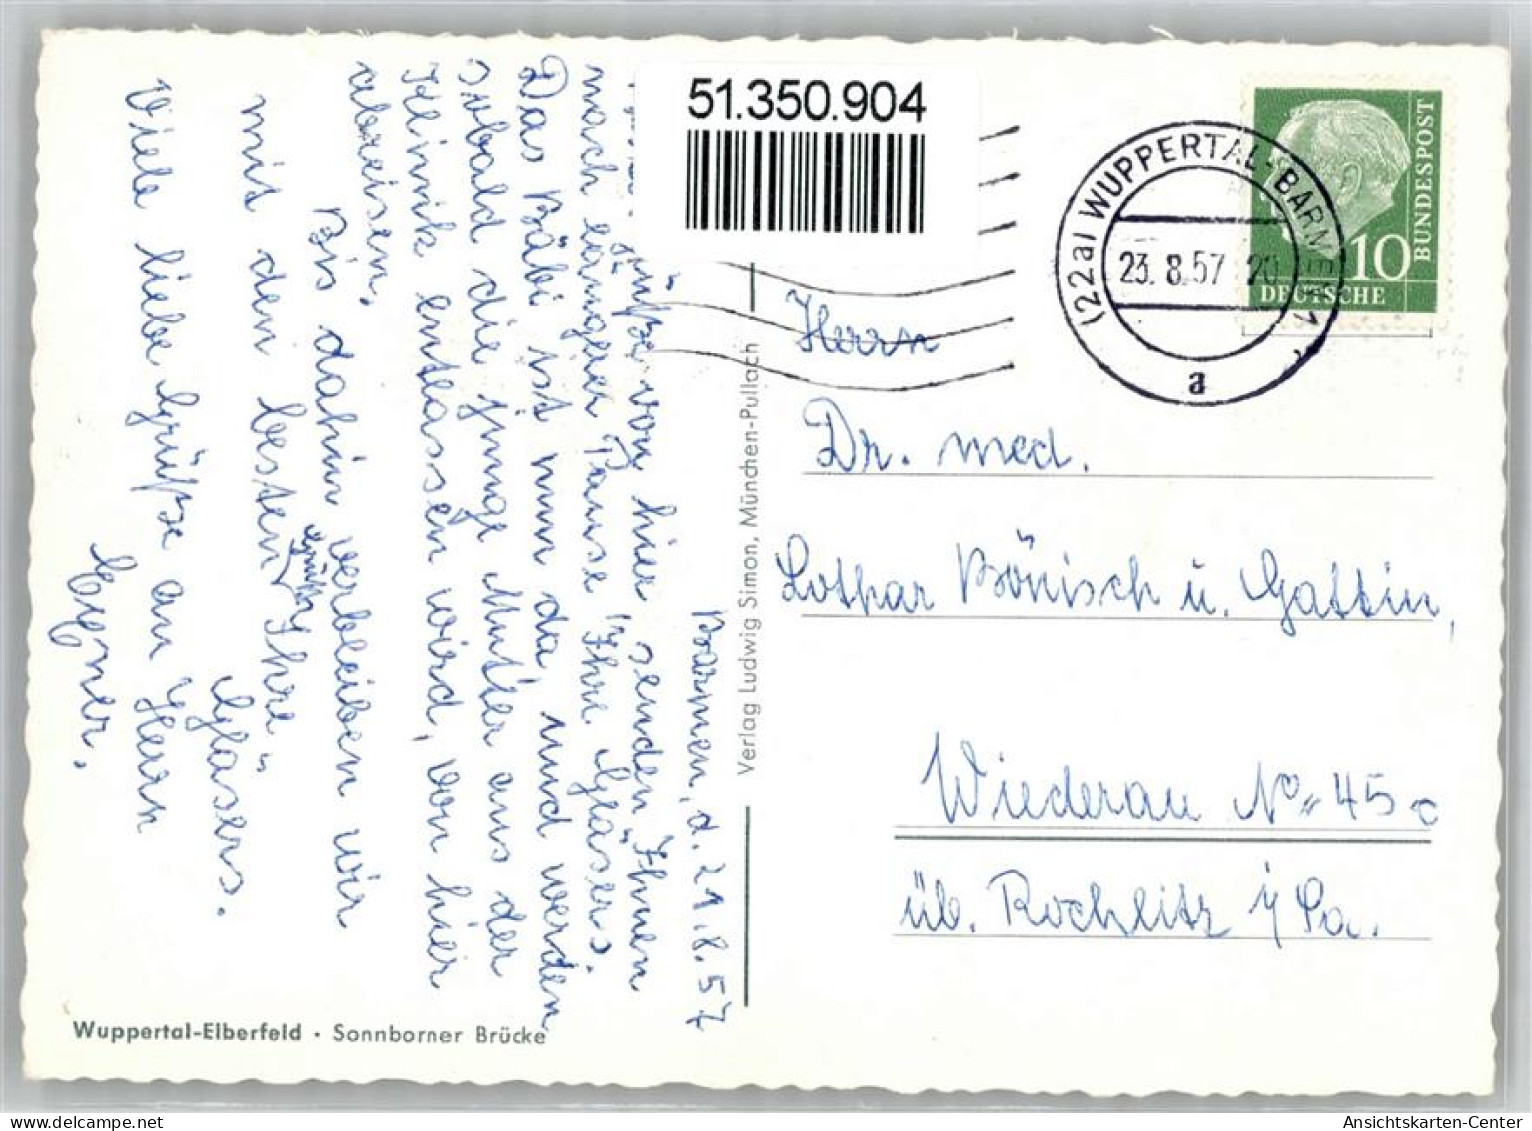 51.350.904
(22a) WUPPERTAL-BARMEN
23. 8.57
20
a
BUNDESPOST
10
DEUTSCHE
Barmen, d. 21.8.57
Grüße von hier senden Ihnen
nach langer Pause Ihre Gläsers.
Das Bäbi ist nun da, und werden
sobald die junge Mutter aus der
Klinik entlassen wird, von hier
abreisen.
Bis dahin verbleiben wir
mit den besten Grüßen Ihre
Gläsers.
Viele liebe Grüße an Herrn
Verlag Ludwig Simon, München-Pullach
Herrn
Dr. med.
Lothar Bönisch u. Gattin,
Wiederau No 45c
üb. Rochlitz i/Sa.
Wuppertal-Elberfeld · Sonnborner Brücke
Ansichtskarten-Center